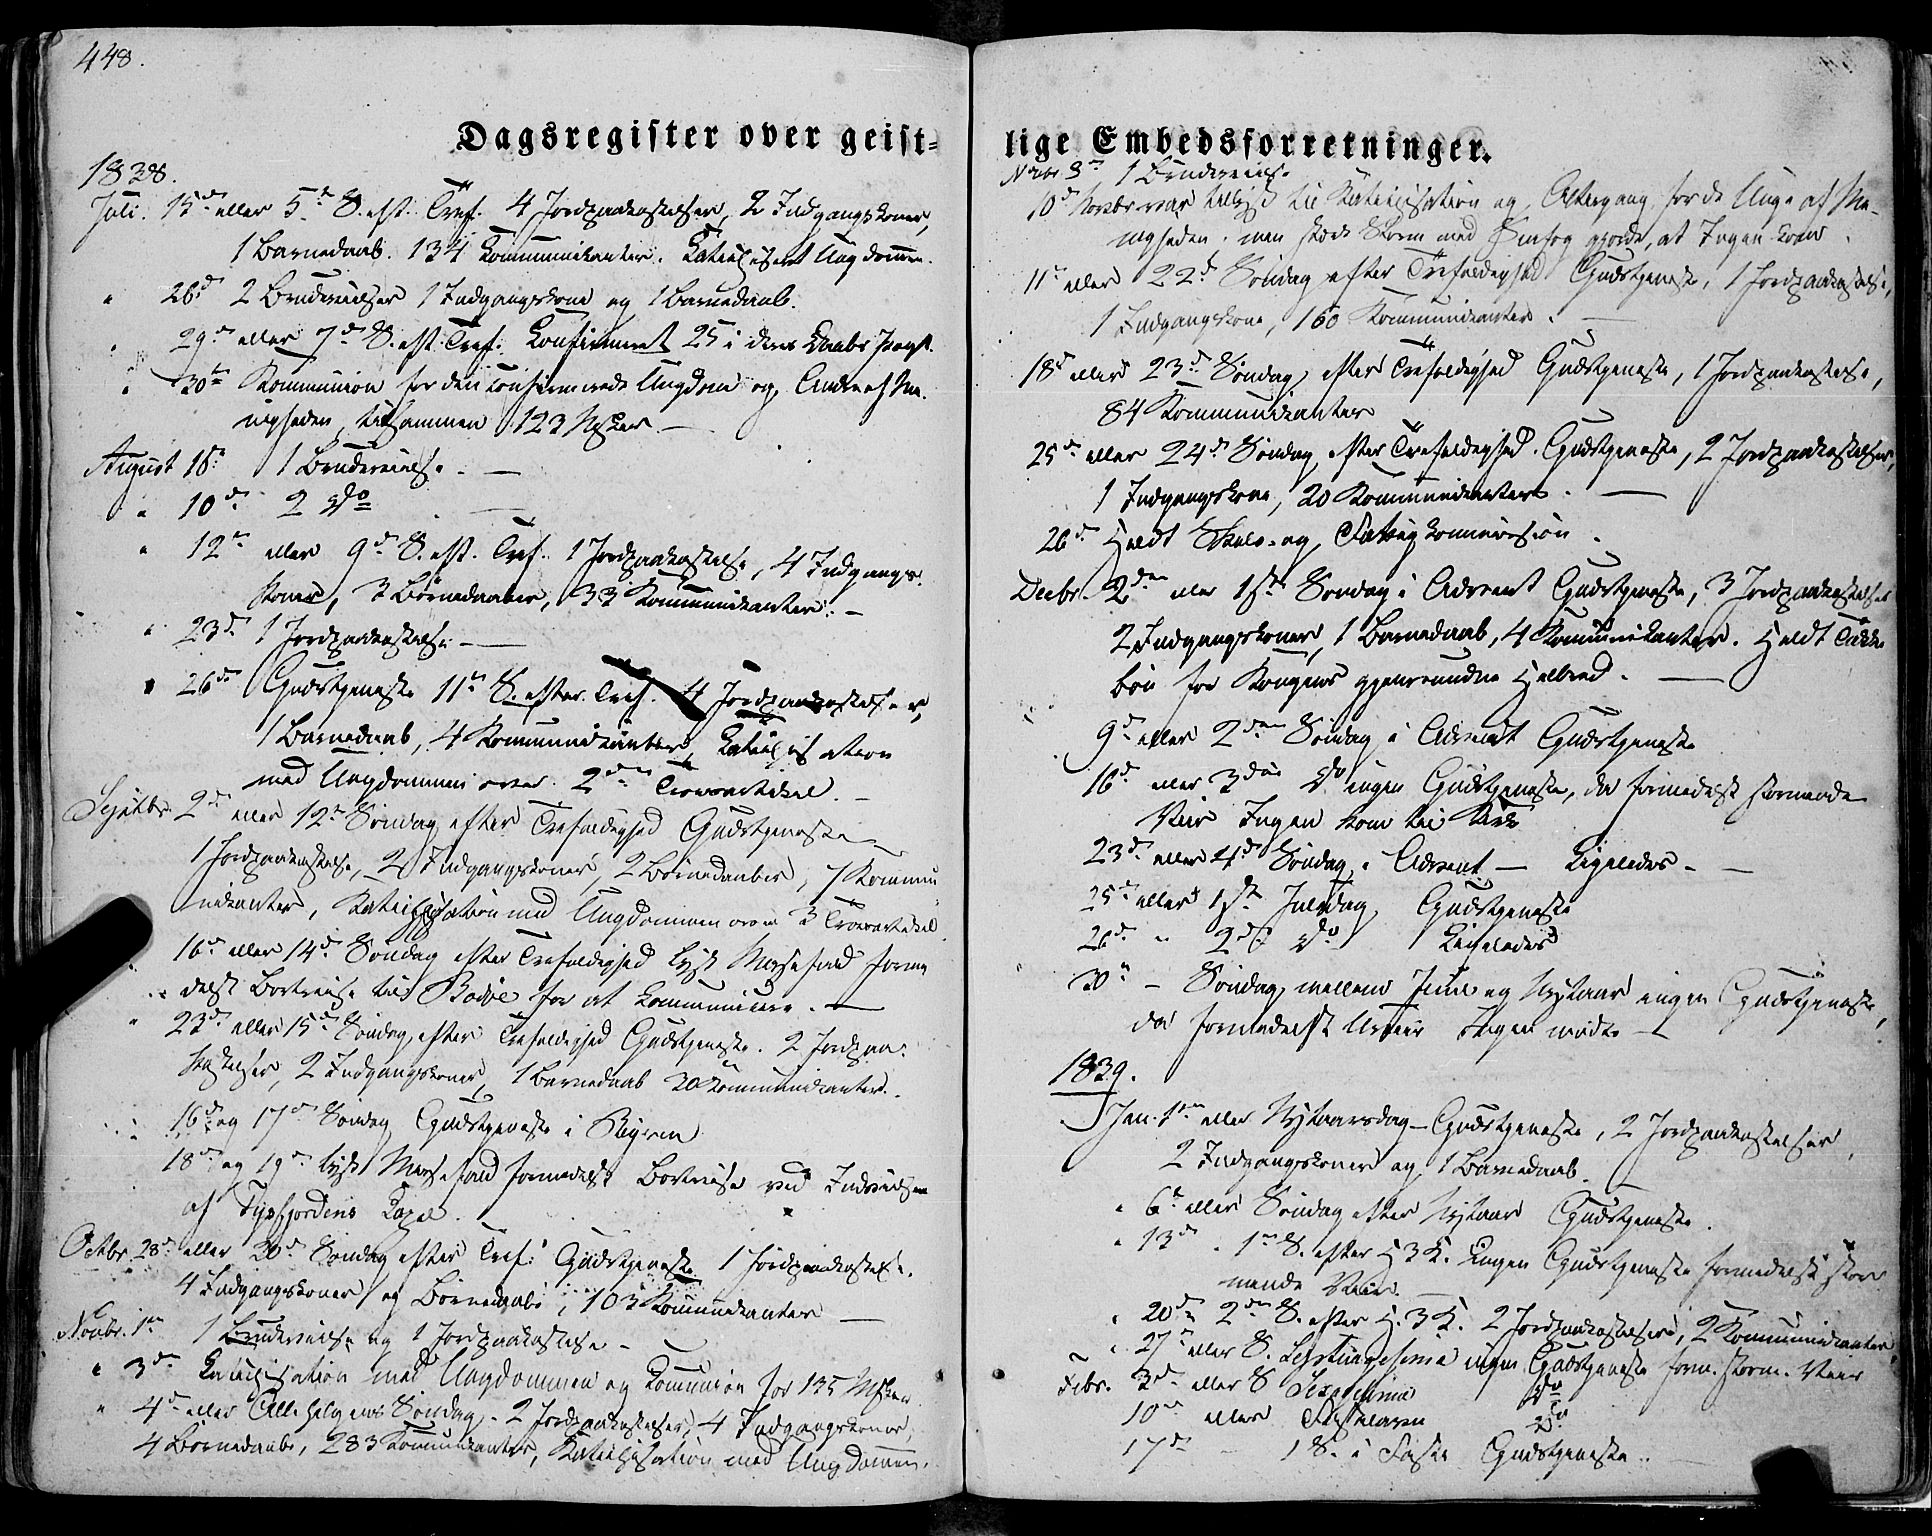 448.
Dagsregister over geist-
1838.
Juli. 15de eller 5te S. eft. Tref. 4 Jordpaakastelser, 2 Indgangskoner,
1 Barnedaab. 134 Kommunikanter. Katechiseret Ungdommen.
" 26de 2 Brudevielser 1 Indgangskone og 1 Barnedaab.
" 29de eller 7de S. eft. Tref. Confirmeret 25 i deres Daabs Pagt.
" 30te Kommunion for den confirmerede Ungdom og Andre af Me-
nigheden, tilsammen 123 Nsker. —
August 1ste 1 Brudevielse. —
" 10de 2 do —
" 12te eller 9de S. eft. Tref. 1 Jordpaakastelse, 4 Indgangs-
koner, 3 Børnedaaber, 33 Kommunikanter. —
" 23de 1 Jordpaakastelse —
" 26de Gudstjeneste 11te S. efter Tref. 4 Jordpaakastelser,
1 Barnedaab, 4 Kommunikanter, Katechisation
med Ungdommen over 2den Troesartikel. —
Septbr. 2de eller 12te Søndag efter Trefoldighed Gudstjeneste
1 Jordpaakastelse, 2 Indgangskoner, 2 Børnedaaber, 7 Kommu
nikanter, Katechisation med Ungdommen over 3 Troesartikel
" 16de eller 14de Søndag efter Trefoldighed lyst Messefald forme
delst Bortreise til Bodøe for at kommunicere. —
" 23de eller 15de Søndag efter Trefoldighed Gudstjeneste. 2 Jordpaa-
kastelser, 2 Indgangskoner, 1 Barnedaab 30 Kommunikanter.
16de og 17de Søndag Gudstjeneste i
18de og 19de lyst Messefald formedelst Bortreise ved Indvielsen
af Tysfjordens Capel.
Octbr. 28de eller 20de Søndag efter Tref: Gudstjeneste 1 Jordpaakastelse.
4 Indgangskoner og Børnedaab, 103 Kommunikanter —
Novbr. 1ste 1 Brudevielse og 1 Jordpaakastelse —
" 3de Katechisation med Ungdommen og Communion for 135 Nsker
" 4de eller Allehelgens Søndag. 2 Jordpaakastelser, 4 Indgangskoner,
4 Børnedaabe, 283 Kommunikanter, Katechisation med Ungdommen.
lige Embedsforretninger.
Novbr 8de 1 Brudevielse
10de Novbr var tillyst til Katechisation og Altergang for de Unge af Me-
nigheden, men stærk Storm med Snefog gjorde, at Ingen kom.
11te eller 22de Søndag efter Trefoldighed Gudstjeneste, 1 Jordpaakastelse,
1 Indgangskone, 160 Kommunikanter. —
18de eller 23de Søndag efter Trefoldighed Gudstjeneste, 1 Jordpaakastelse,
84 Kommunikanter
25de eller 24de Søndag efter Trefoldighed. Gudstjeneste, 2 Jordpaakastelser,
1 Indgangskone, 20 Kommunikanter. —
26de Holdt Skole- og Fattigkommission.
Decbr. 2den eller 1ste Søndag i Advent Gudstjeneste, 3 Jordpaakastelser
2 Indgangskoner, 1 Barnedaab, 4 Kommunikanter. Holdt Takke
bøn for Kongens gjenvundne Helbred. —
9de eller 2den Søndag i Advent Gudstjeneste
16de eller 3die do ingen Gudstjeneste, da formedelst stormende
Veir Ingen kom til Kirke
23de eller 4de Søndag i Advent — Ligeledes —
25de eller 1ste Juledag Gudstjeneste
26de " 2den do Ligeledes
30te — Søndag mellem Juul og Nytaar ingen Gudstjeneste,
da formedelst Uveir Ingen mødte —
1839.
Jan. 1ste eller Nytaarsdag — Gudstjeneste, 2 Jordpaakastelser,
2 Indgangskoner og 1 Barnedaab.
" 6te eller Søndag efter Nytaar Gudstjeneste.
" 13de " 1ste S. efter H 3 K. Ingen Gudstjeneste formedelst stor
mende Veir. —
" 20de 2den S. efter H. 3 K. 2 Jordpaakastelser, 2 Kommunikanter
" 27de eller S. Septuagesima ingen Gudstjeneste form. storm. Veir
Febr. 3de eller S Sexagesima do
10de eller Fastelavn do
17de — 1 S. i Faste Gudstjeneste.